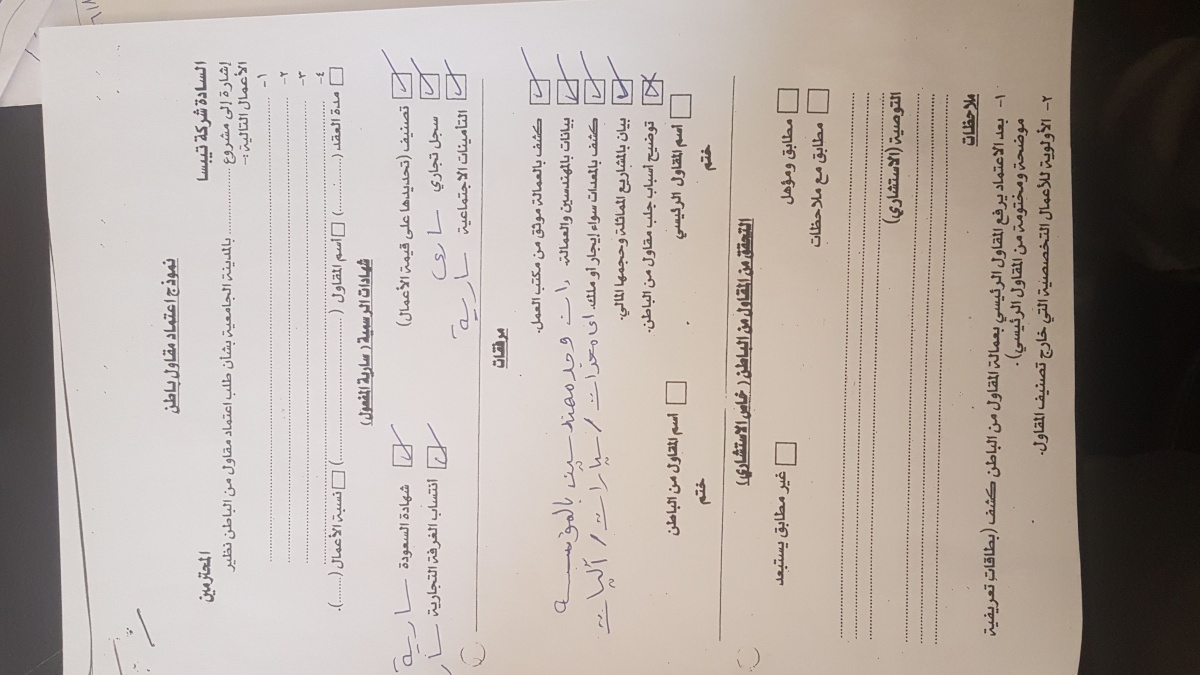 نموذج اعتماد مقاول باطن
السادة شركة تيبسا المحترمين
إشارة إلى مشروع .................. بالمدينة الجامعية بشأن طلب اعتماد مقاول من الباطن نظير
الأعمال التالية :-
١-
٢-
٣-
٤-
مدة العقد (............) اسم المقاول (............) نسبة الأعمال (......).
شهادات الرسمية ( سارية المفعول)
تصنيف (تحديدها على قيمة الأعمال) شهادة السعودة سارية
سجل تجاري سارى انتساب الغرفة التجارية
التأمينات الاجتماعية سارية
مرفقات
كشف بالعمالة موثق من مكتب العمل.
بيانات بالمهندسين والعمالة. بالمؤسسه
كشف بالمعدات سواء إيجار او ملك. اى معدات / سيارات / آليات
بيان بالمشاريع المماثلة وحجمها المالي.
توضيح اسباب جلب مقاول من الباطن.
اسم المقاول الرئيسي اسم المقاول من الباطن
ختم ختم
التحقق من المقاول من الباطن ( خاص الاستشاري)
مطابق ومؤهل غير مطابق يستبعد
مطابق مع ملاحظات
التوصية (الاستشاري)
ملاحظات
١- بعد الاعتماد يرفع المقاول الرئيسي بعمالة المقاول من الباطن كشف (بطاقات تعريفية
موضحة ومختومة من المقاول الرئيسي).
٢- الأولوية للأعمال التخصصية التي خارج تصنيف المقاول.